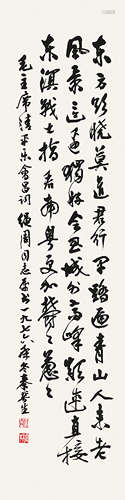 东方欲晓莫道君行早踏遍青山人未老
风景这边独好会昌城外高峰颠连直接
东溟战士指看南粤更加欝々葱々
毛主席清平乐会昌词 同志属书一九七六年冬秦咢生